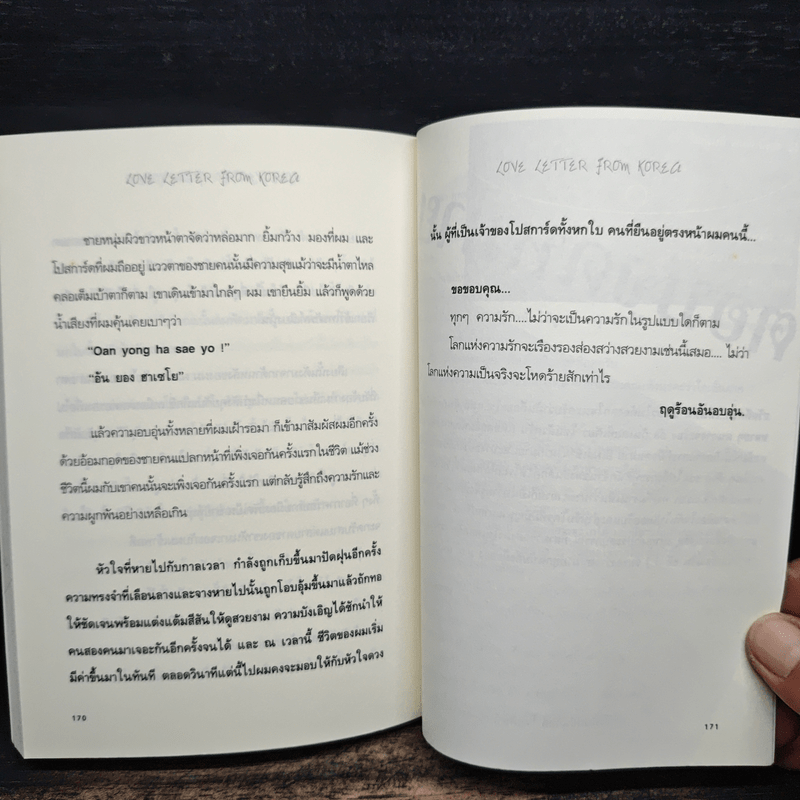 LOVE LETTER FROM KOREA
ชายหนุ่มผิวขาวหน้าตาจัดว่าหล่อมาก ยิ้มกว้าง มองที่ผม และ
โปสการ์ดที่ผมถืออยู่ แววตาของชายคนนั้นมีความสุขแม้ว่าจะมีน้ำตาไหล
คลอเต็มเบ้าตาก็ตาม เขาเดินเข้ามาใกล้ๆ ผม เขายืนยิ้ม แล้วก็พูดด้วย
น้ำเสียงที่ผมคุ้นเคยเบาๆว่า
“Oan yong ha sae yo !”
“อัน ยอง ฮาเซโย”
แล้วความอบอุ่นทั้งหลายที่ผมเฝ้ารอมา ก็เข้ามาสัมผัสผมอีกครั้ง
ด้วยอ้อมกอดของชายคนแปลกหน้าที่เพิ่งเจอกันครั้งแรกในชีวิต แม้ช่วง
ชีวิตนี้ผมกับเขาคนนั้นจะเพิ่งเจอกันครั้งแรก แต่กลับรู้สึกถึงความรักและ
ความผูกพันอย่างเหลือเกิน
หัวใจที่หายไปกับกาลเวลา กำลังถูกเก็บขึ้นมาปัดฝุ่นอีกครั้ง
ความทรงจำที่เลือนลางและจางหายไปนั้นถูกโอบอุ้มขึ้นมาแล้วถักทอ
ให้ชัดเจนพร้อมแต่งแต้มสีสันให้ดูสวยงาม ความบังเอิญได้ชักนำให้
คนสองคนมาเจอะกันอีกครั้งจนได้ และ ณ เวลานี้ ชีวิตของผมเริ่ม
มีค่าขึ้นมาในทันที ตลอดวินาทีแต่นี้ไปผมคงจะมอบให้กับหัวใจดวง
170
LOVE LETTER FROM KOREA
นั้น ผู้ที่เป็นเจ้าของโปสการ์ดทั้งหกใบ คนที่ยืนอยู่ตรงหน้าผมคนนี้...
ขอขอบคุณ...
ทุกๆ ความรัก....ไม่ว่าจะเป็นความรักในรูปแบบใดก็ตาม
โลกแห่งความรักจะเรืองรองส่องสว่างสวยงามเช่นนี้เสมอ.... ไม่ว่า
โลกแห่งความเป็นจริงจะโหดร้ายสักเท่าไร
ฤดูร้อนอันอบอุ่น.
171